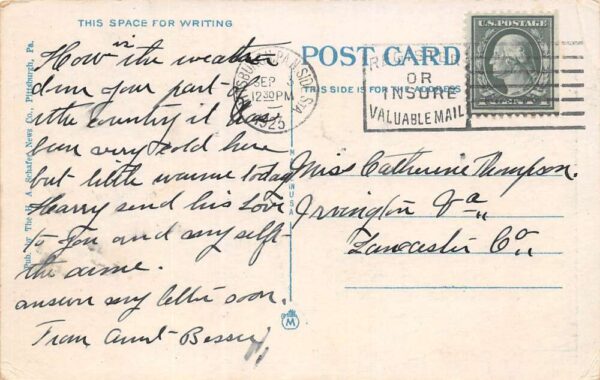 THIS SPACE FOR WRITING
How is the weather
down your part of
the country it has
been very cold here
but little warme today
Harry send his Love
to you and my self
the same.
answer my letter soon.
From Aunt Bessie
Pub. for The H. A. Schafer News Co., Pittsburgh, Pa.
POST CARD
THIS SIDE IS FOR THE ADDRESS
SEP
12 30 PM
1923
REGISTER
OR
INSURE
VALUABLE MAIL
U.S. POSTAGE
Miss Catherine Thompson.
Irvington Va
Lancaster Co
M